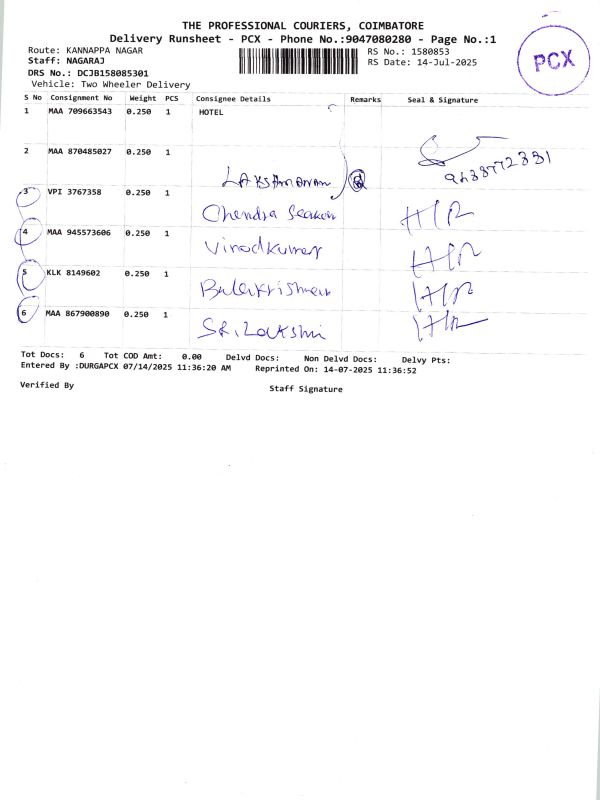 THE PROFESSIONAL COURIERS, COIMBATORE
Delivery Runsheet - PCX - Phone No.:9047080280 - Page No.:1
Route: KANNAPPA NAGAR
Staff: NAGARAJ
DRS No.: DCJB158085301
Vehicle: Two Wheeler Delivery
RS No.: 1580853
RS Date: 14-Jul-2025
PCX
S No Consignment No Weight PCS Consignee Details Remarks Seal & Signature
1 MAA 709663543 0.250 1 HOTEL
2 MAA 870485027 0.250 1
3 VPI 3767358 0.250 1 Chendra Seaker H/R
4 MAA 945573606 0.250 1 Vinodkumar H/R
5 KLK 8149602 0.250 1 Balakrishnan H/R
6 MAA 867900890 0.250 1 SR.Lakshmi H/R
Tot Docs: 6 Tot COD Amt: 0.00 Delvd Docs: Non Delvd Docs: Delvy Pts:
Entered By :DURGAPCX 07/14/2025 11:36:20 AM Reprinted On: 14-07-2025 11:36:52
Verified By Staff Signature